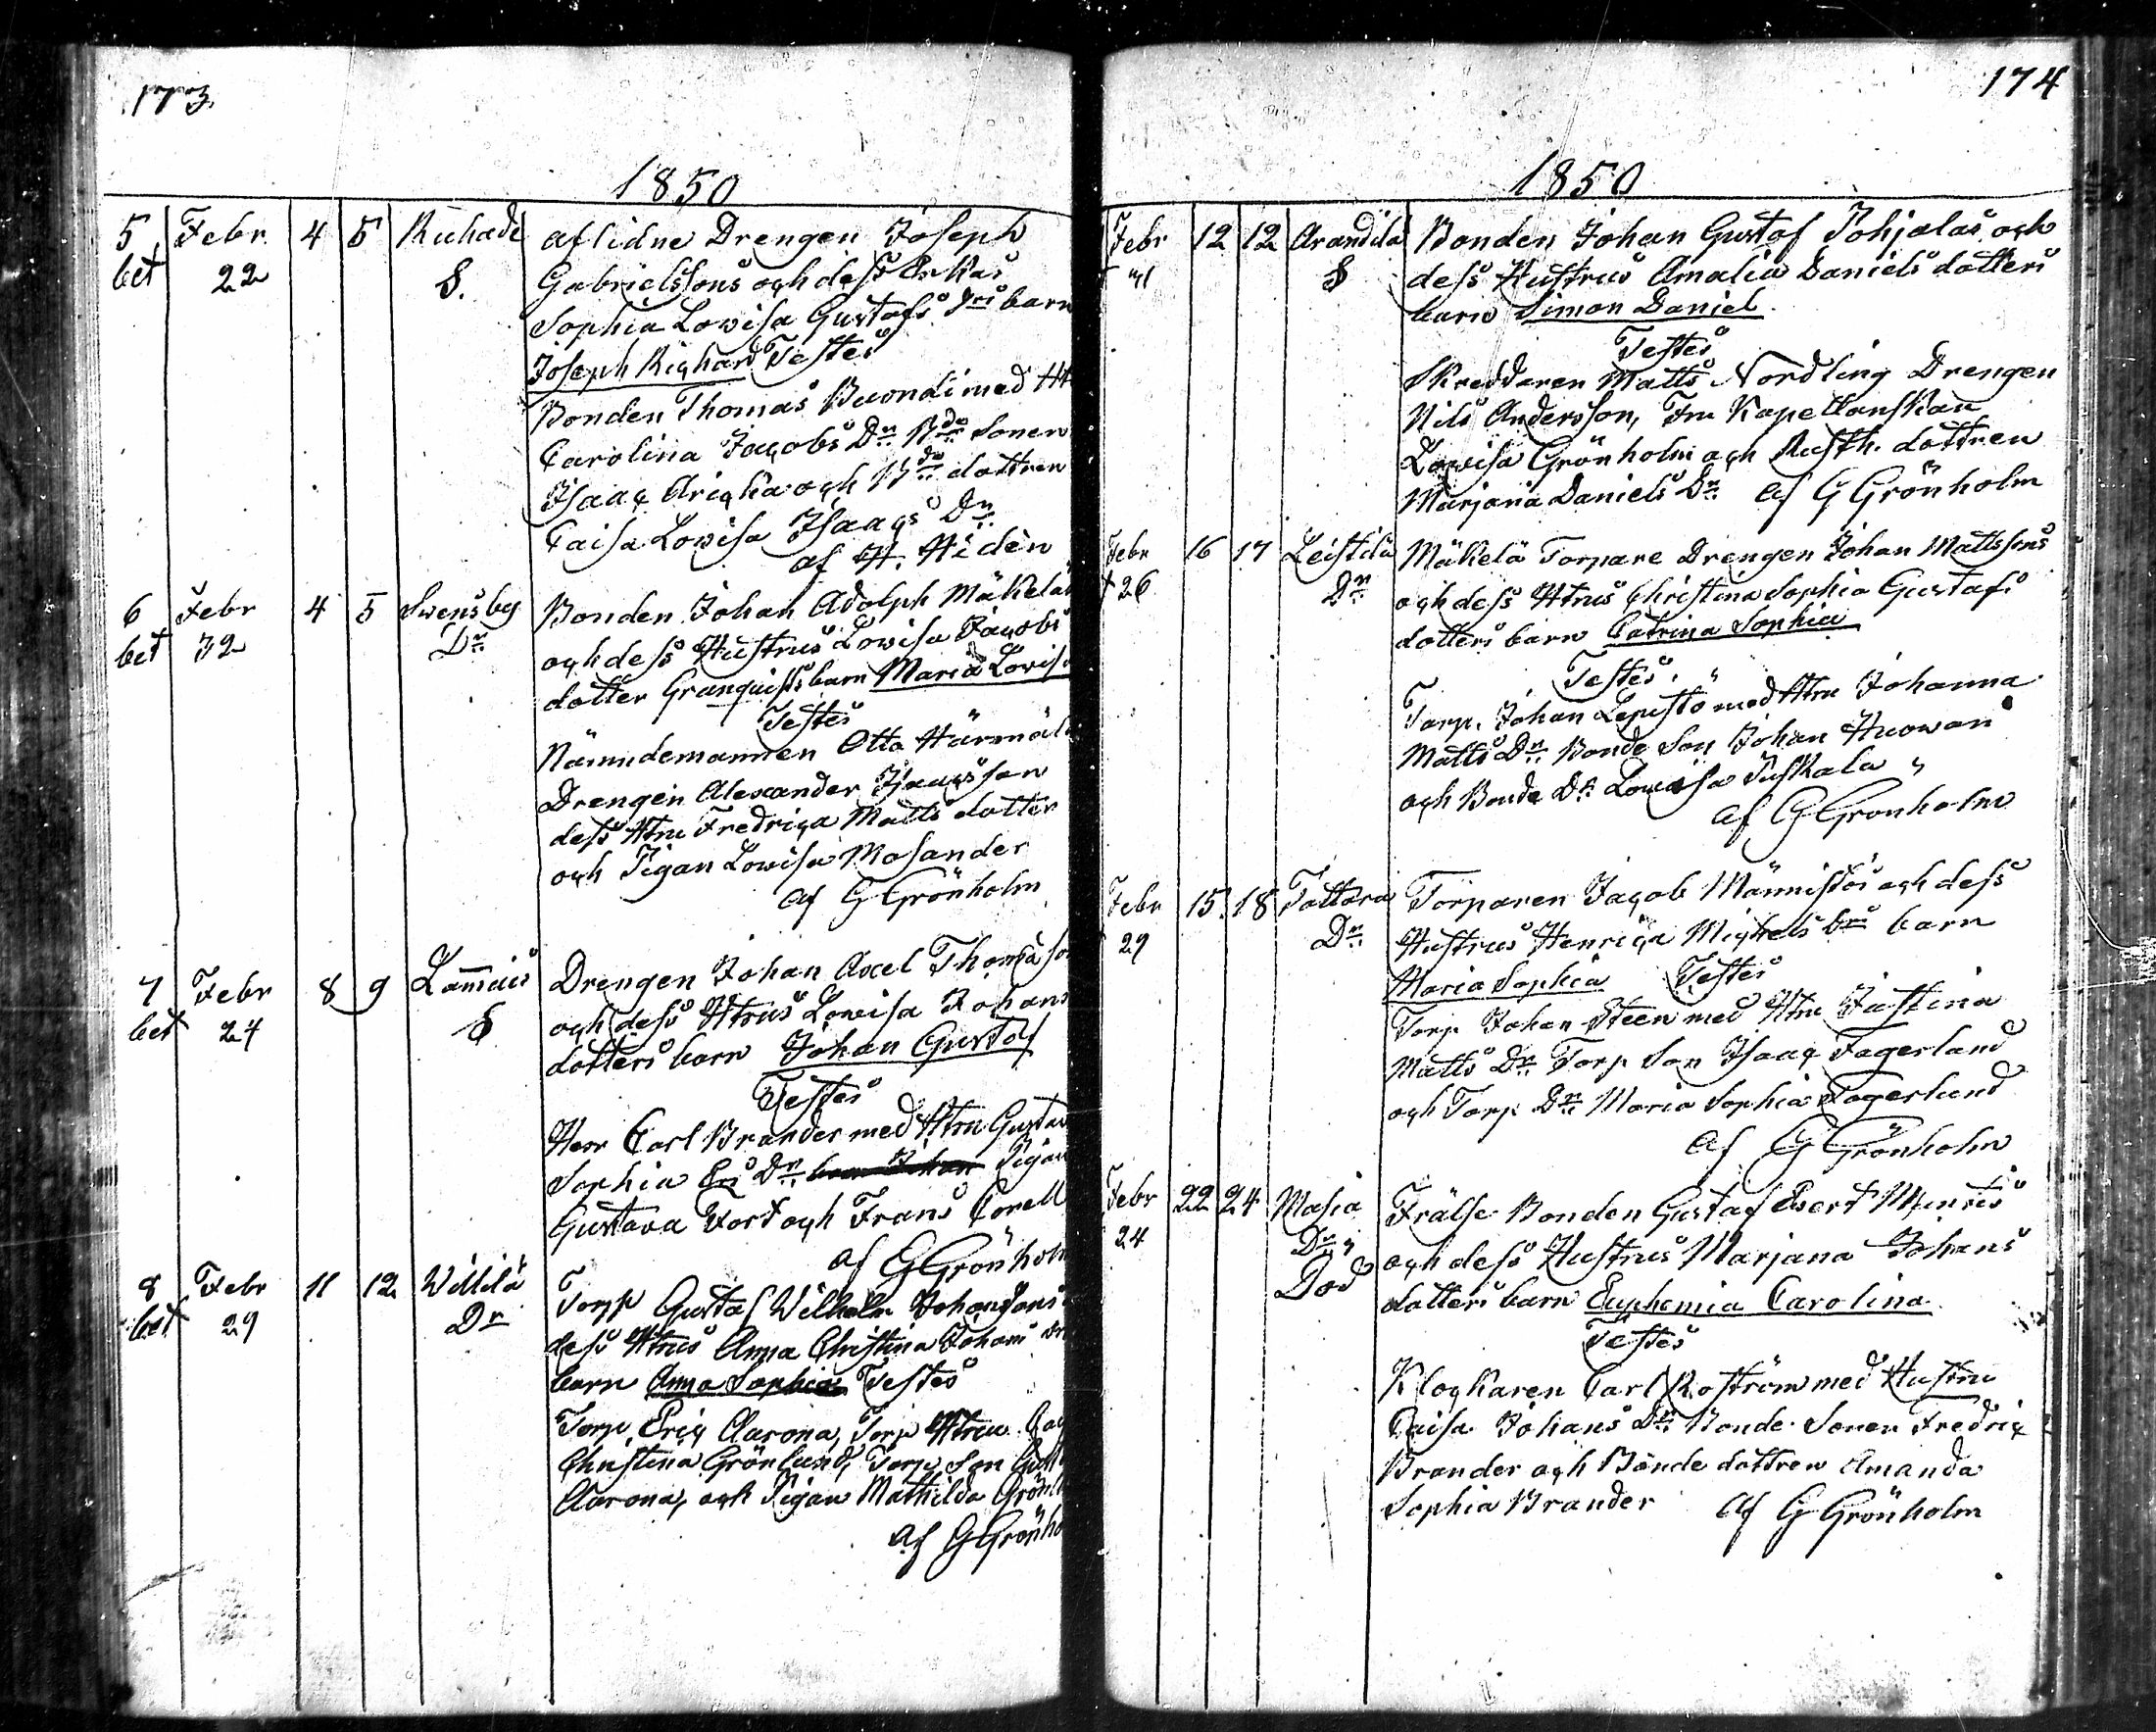 173
1850
5 Febr 4 5 Richade aflidne Drengen Joseph
bet 22 S. Gabrielssons och dess Enkas
Sophia Lovisa Gustafs Drs barn
Joseph Richard Testes
Bonden Thomas med H
Carolina Jacobs Dr. Bde Sonen
Isaac och Bde dottren
Caisa Lovisa Isaacs Dr.
af H. Hidén
6 Febr 4 5 Svensby Bonden Johan Adolph Mäkelä
bet 32 Dr. och dess Hustrus Lovisa Jacobs
dotter Granquists barn Maria Lovisa
Testes
Nämndemannen Otto Härmälä
Drengen Alexander Isaacsson
dess Htru Fredrica Matts dotter
och Pigan Lovisa Mosander
af G Grönholm
7 Febr 8 9 Lammais Drengen Johan Axel Thomasson
bet 24 S och dess Htrus Lovisa Johans
dotters barn Johan Gustaf
Testes
Herr Carl Brander med Htru Gustava
Sophia Dr. Pigan
Gustava och Frans Corell
af G Grönholm
8 Febr 11 12 Willilä Torp Gustaf Wilhelm Johanssons
bet 29 Dr dess Htrus Anna Christina Johans Drs
barn Anna Sophia Testes
Torp. Eric Aarona, Torp Htrun
Christina Grönlund, Torp Son
Aarona, och Pigan Mathilda
af G Grönho
174
1850
Febr 12 12 Arandila Bonden Johan Gustaf Pohjalas och
S dess Hustrus Amalia Daniels dotters
barn Simon Daniel
Testes
Skreddaren Matts Nordling Drengen
Nils Andersson, Fru Kapellanskan
Lovisa Grönholm och Rusth. dottren
Marjana Daniels Dr. af G Grönholm
Febr 16 17 Leistilä Mäkelä Torpare Drengen Johan Mattssons
26 Dr. och dess Htrus Christina Sophia Gustafs
dotters barn Catrina Sophia
Testes
Torp. Johan Lepistö med Htru Johanna
Matts Dr. Bonde Son Johan Huowari
och Bonde Dr. Lovisa
af G Grönholm
Febr 15 18 Tattara Torparen Jacob Männistös och dess
29 Dr. Hustrus Henrica Michels Drs barn
Maria Sophia Testes
Torp Johan Steen med Htru Justina
Matts Dr. Torp Son Isaac Fagerlund
och Torp Dr. Maria Sophia Fagerlund
af G Grönholm
Febr 22 24 Masia Frälse Bonden Gustaf Evert
24 Dr. och dess Hustrus Marjana Johans
Död dotters barn Euphemia Carolina
Testes
Klockaren Carl Roström med Hustru
Caisa Johans Dr. Bonde Sonen Fredric
Brander och Bonde dottren Amanda
Sophia Brander af G Grönholm